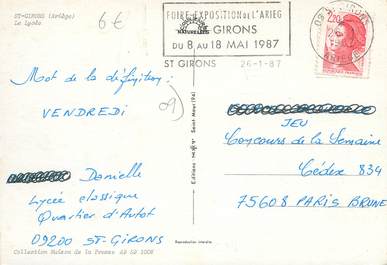 ST-GIRONS (Ariège)
Le Lycée
6€
FOIRE-EXPOSITION de L'ARIEG
NATURELLE
GIRONS
DU 8 AU 18 MAI 1987
ST GIRONS 26-1-87
09 ST GIRONS
ARIEGE
2,20
Mot de la définition :
VENDREDI
09)
Danielle
Lycée classique
Quartier d'Autot
09200 ST-GIRONS
Collection Maison de la Presse
Editions
Saint Maur
Reproduction interdite
JEU
Concours de la Semaine
Cédex 834
75608 PARIS BRUNE